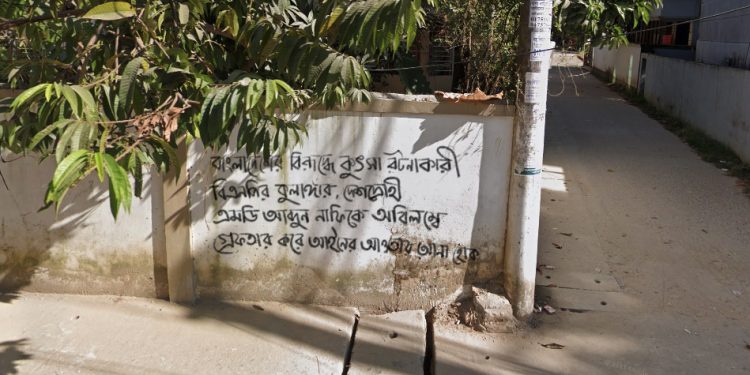 বাংলাদেশের বিরুদ্ধে কুৎসা রটনাকারী
বিএনপির কুলাঙ্গার দেশদ্রোহী
এমডি আব্দুন নাফিকে অবিলম্বে
গ্রেফতার করে আইনের আওতায় আনা হোক